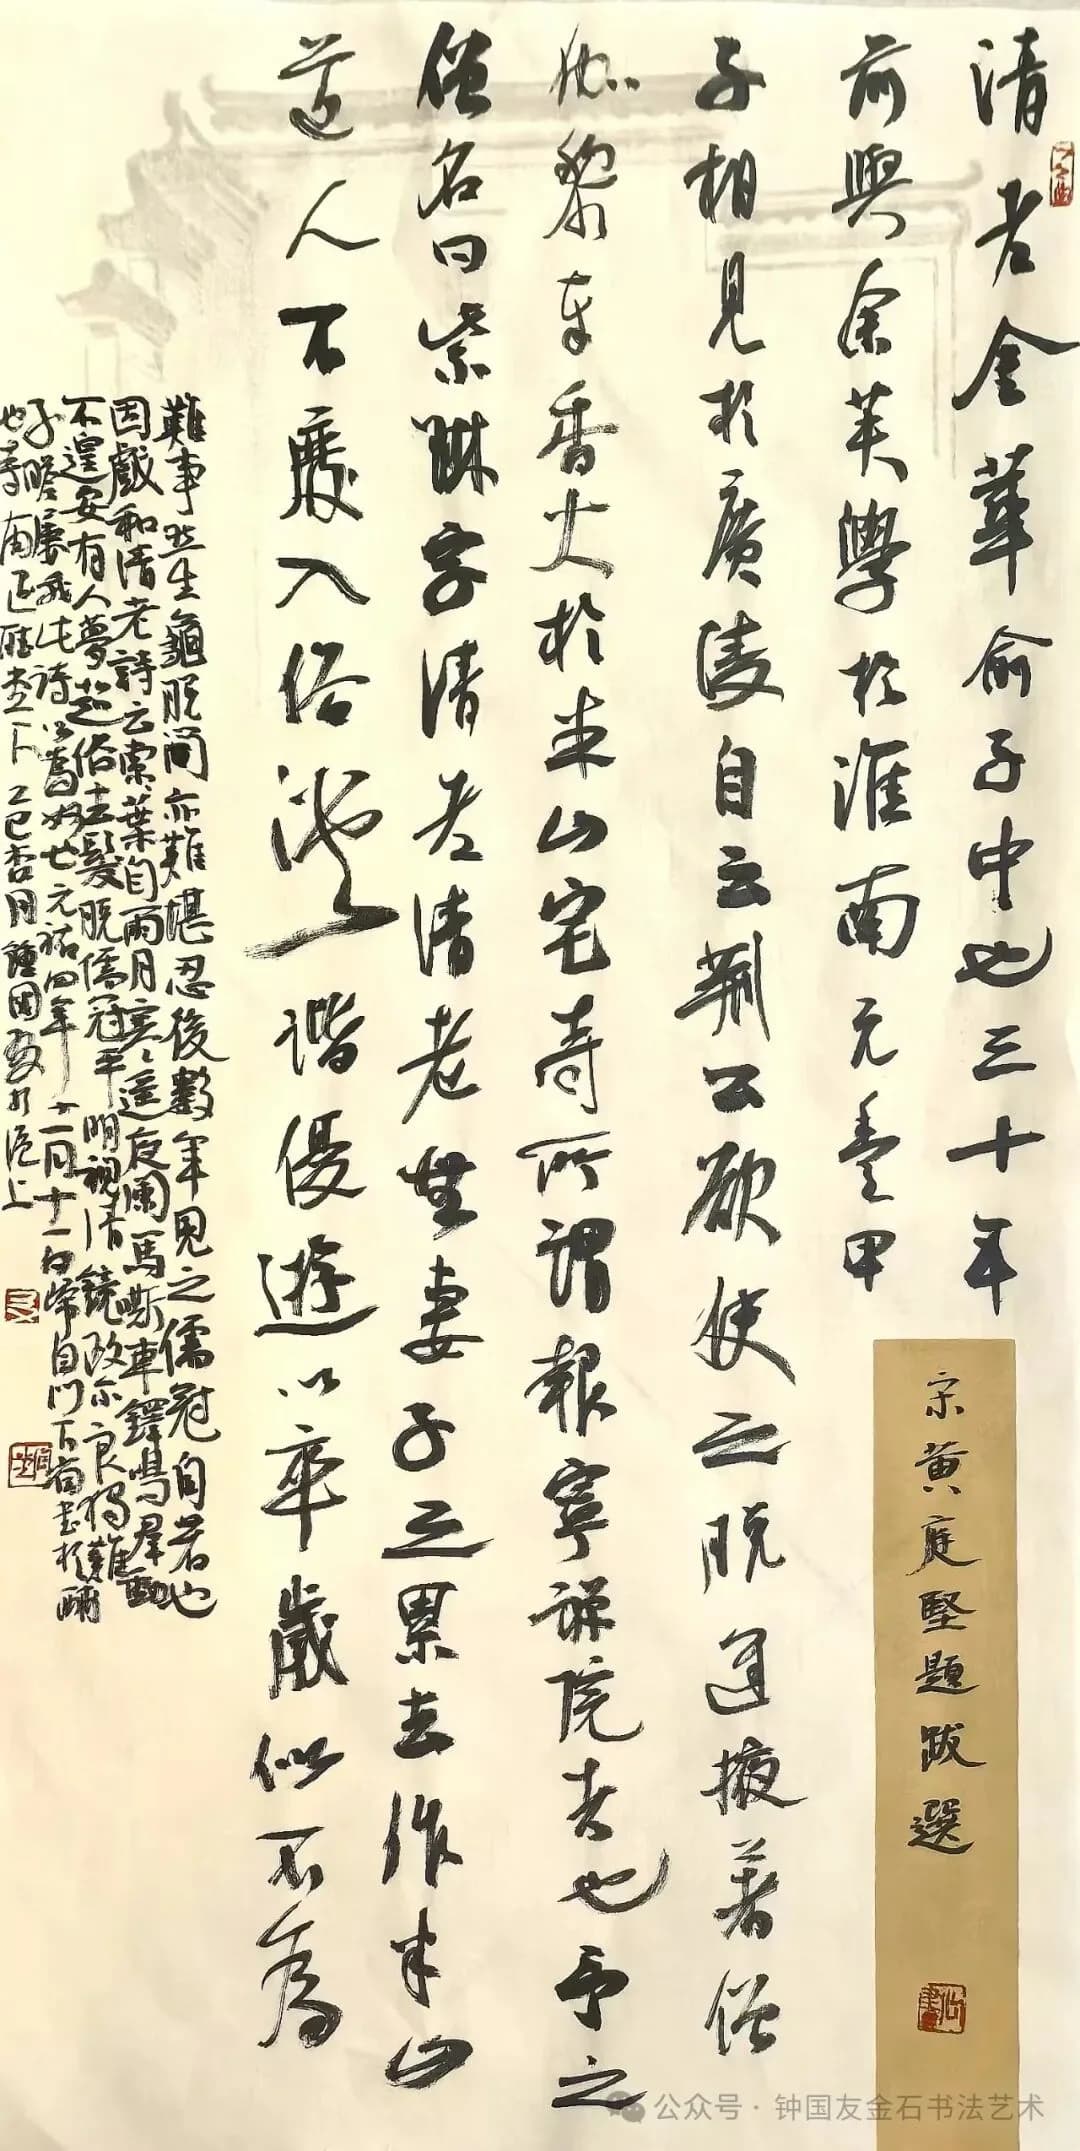 清老金華俞子中也三十年
前與余共學於淮南元豐甲
子相見於廣陵自云荆公欲使之脱逢掖著僧
伽黎奉香火於半山宅寺所謂報寧禪院者也予之
僧名曰紫琳字清老清老無妻子之累去作半山
道人不廢入俗諧優遊以卒歲似不為
難事然生龜脱筩亦難堪忍後數年見之儒冠自若也
因戲和清老詩云索索葉自雨月寒遥夜闌馬嘶車鐸鳴群動
不遑安有人夢超俗去髮脱儒冠平明視清鏡政尔良獨難
子瞻屢哦此詩以為妙也元祐四年十一月十一日歸自門下省書於酺
池寺南退聽堂下乙巳杏月鍾國友於滬上
宋黄庭堅題跋選
公众号·钟国友金石书法艺术